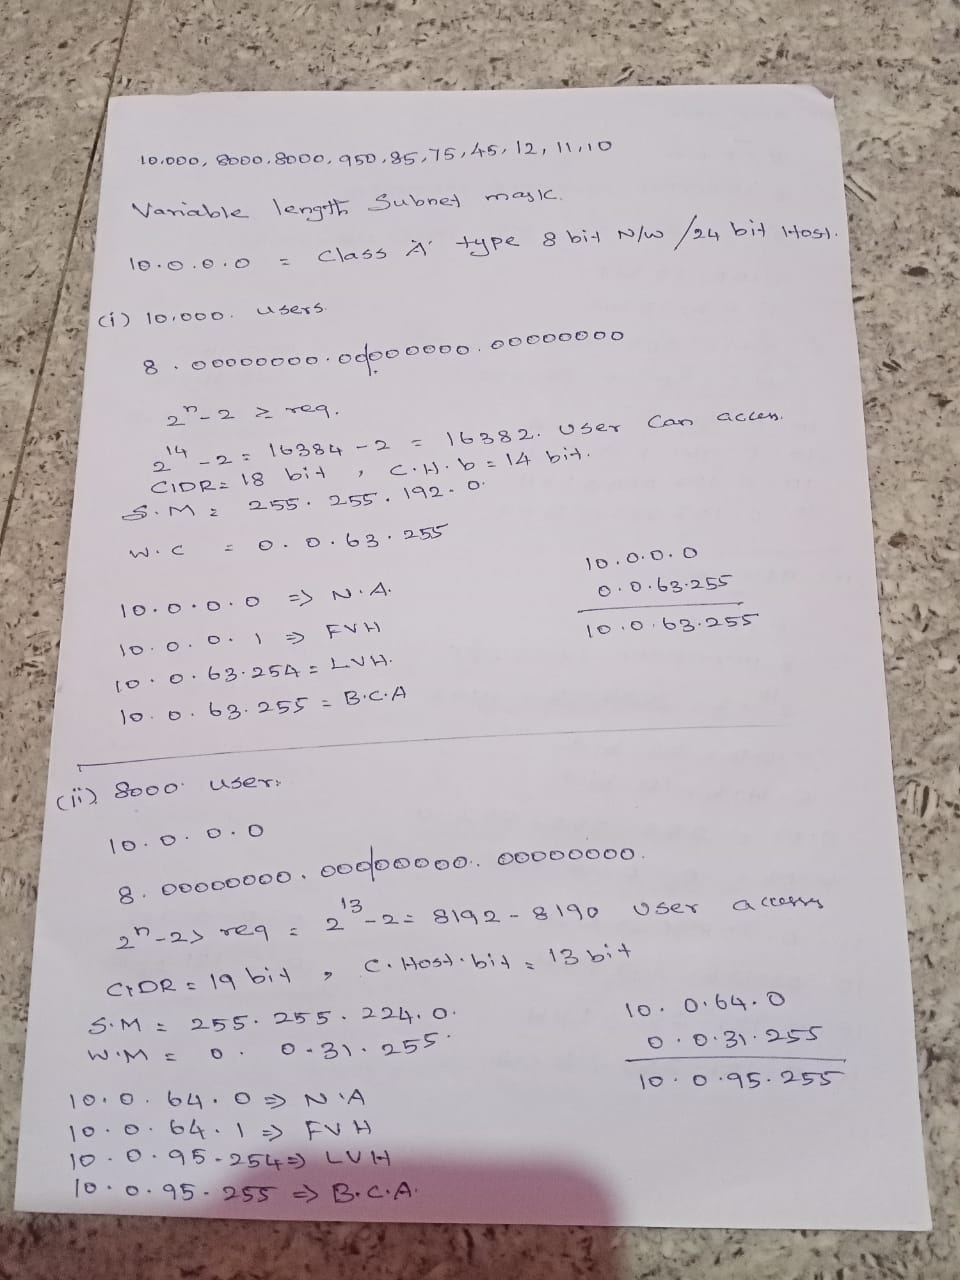 10,000, 8000, 8000, 950, 85, 75, 45, 12, 11, 10
Variable length Subnet mask.
10.0.0.0 = class A' type 8 bit N/W /24 bit Host.
(i) 10,000. users.
8 . 00000000 . 00|000000 . 00000000
2^n - 2 ≥ req.
2^14 - 2 = 16384 - 2 = 16382. User can acces.
CIDR = 18 bit , C.H.b = 14 bit.
S.M = 255. 255. 192. 0.
W.C = 0. 0. 63. 255
10.0.0.0 => N.A.
10.0.0.1 => FVH
10.0.63.254 = LVH.
10.0.63.255 = B.C.A
10.0.0.0
0.0.63.255
10.0.63.255
(ii) 8000 user:
10.0.0.0
8. 00000000. 000|00000.. 00000000.
2^n - 2 > req = 2^13 - 2 = 8192 - 8190 User access
CIDR = 19 bit , C. Host. bit = 13 bit
S.M = 255. 255. 224. 0.
W.M = 0. 0.31. 255.
10. 0.64. 0
0.0.31.255
10.0.95.255
10.0.64.0 => N.A
10.0.64.1 => FVH
10.0.95.254 => LVH
10.0.95.255 => B.C.A.